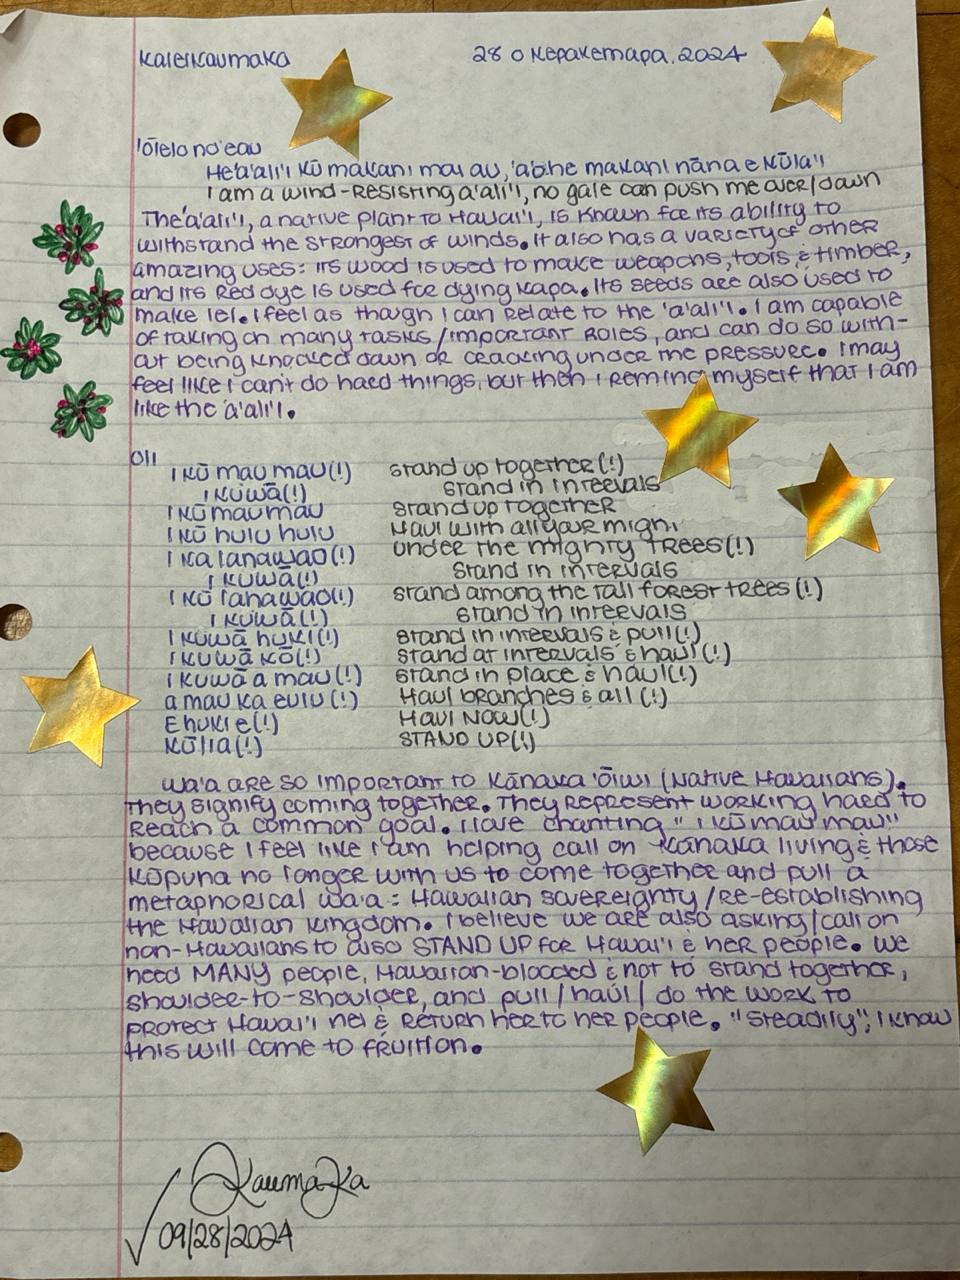 Kaleikaumaka
28 o Kepakemapa, 2024
'ōlelo no'eau
He 'a'ali'i kū makani mai au, 'a'ohe makani nāna e kūla'i
I am a wind-resisting a'ali'i, no gale can push me over/down
The 'a'ali'i, a native plant to Hawai'i, is known for its ability to
withstand the strongest of winds. It also has a variety of other
amazing uses: its wood is used to make weapons, tools, & timber,
and its red dye is used for dying kapa. Its seeds are also used to
make lei. I feel as though I can relate to the 'a'ali'i. I am capable
of taking on many tasks/important roles, and can do so with-
out being knocked down or cracking under the pressure. I may
feel like I can't do hard things, but then I remind myself that I am
like the 'a'ali'i.
Oli
I kū mau mau(!) stand up together(!)
I kūwā(!) stand in intervals
I kū mau mau stand up together
I kū hulu hulu Haul with all your might
I ka lanawao(!) under the mighty trees(!)
I kūwā(!) Stand in intervals
I kū lanawao(!) stand among the tall forest trees(!)
I kūwā(!) stand in intervals
I kūwā huki(!) stand in intervals & pull(!)
I kuwā kō(!) stand at intervals & haul(!)
I kuwā a mau(!) stand in place & haul(!)
a mau ka eulu(!) Haul branches & all(!)
E huki e(!) Haul Now(!)
Kūlia(!) STAND UP(!)
Wa'a are so important to Kānaka 'Ōiwi (Native Hawaiians).
They signify coming together. They represent working hard to
reach a common goal. I love chanting "I kū mau mau"
because I feel like I am helping call on Kānaka living & those
Kūpuna no longer with us to come together and pull a
metaphorical wa'a: Hawaiian sovereignty/re-establishing
the Hawaiian Kingdom. I believe we are also asking/call on
non-Hawaiians to also STAND UP for Hawai'i & her people. We
need MANY people, Hawaiian-blooded & not to stand together,
shoulder-to-shoulder, and pull/haul/do the work to
protect Hawai'i nei & return her to her people. "Steadily", I know
this will come to fruition.
Kaumaka
09/28/2024